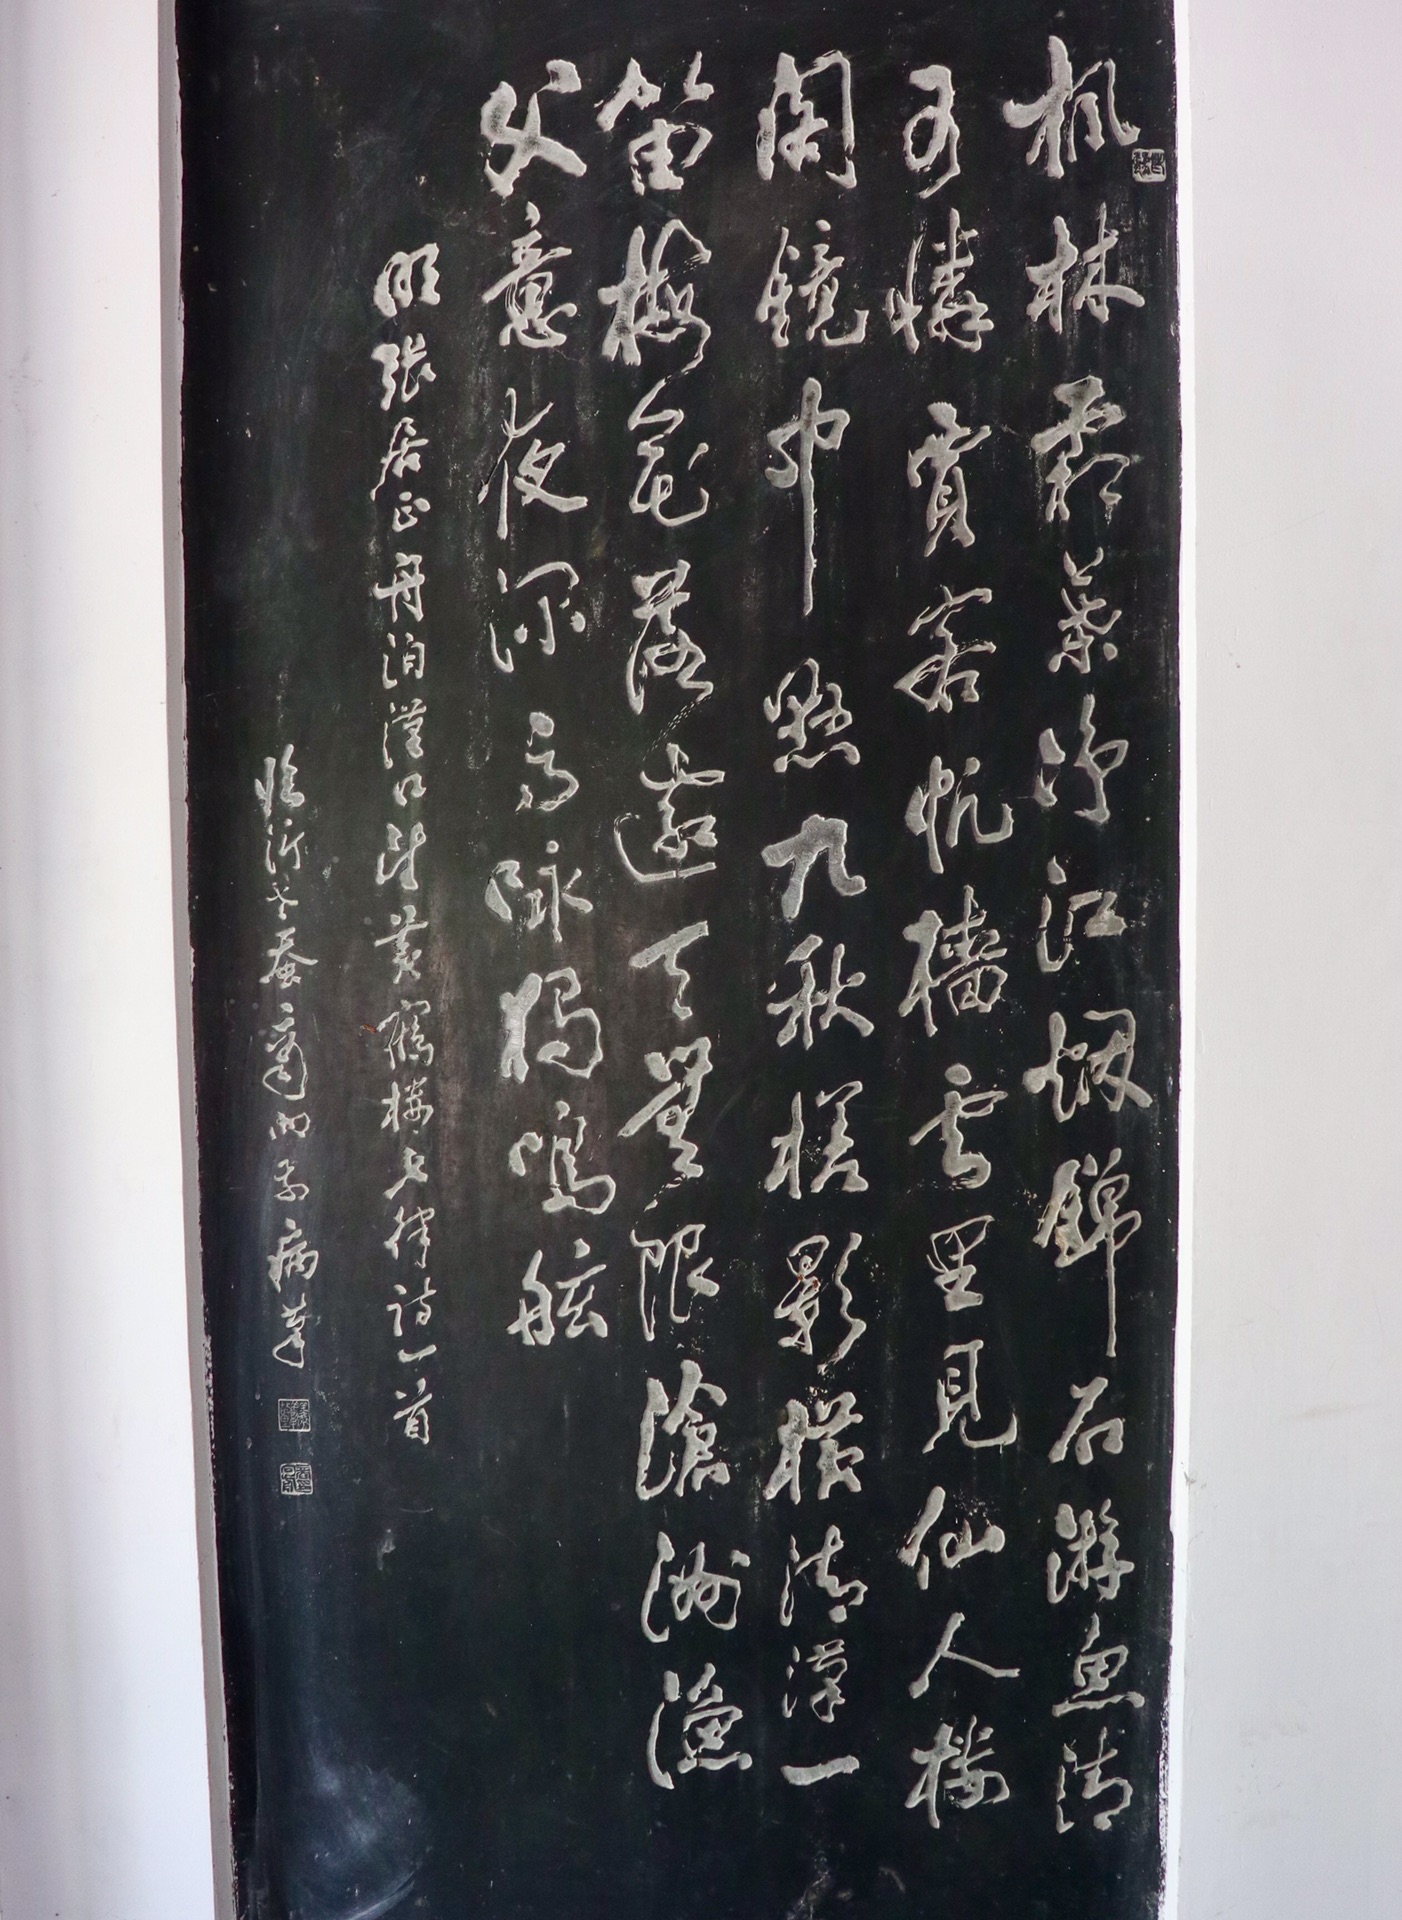 枫林霜葉净江烟錦石游魚清
可憐賈客帆檣雲里見仙人樓
閣鏡中懸九秋槎影橫清漢一
笛梅花落遠天無限滄洲漁
父意夜深高詠獨鳴舷
明張居正舟泊漢口望黃鶴樓七律詩一首
臨沂老蚕